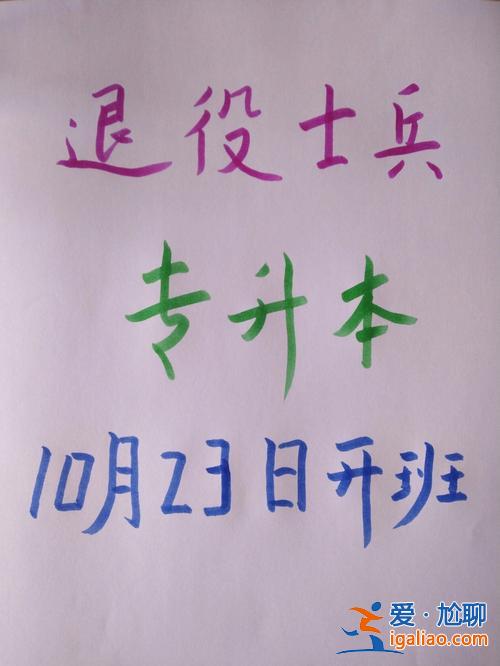 退役士兵
专升本
10月23日开班
爱·尬聊
igaliao.com